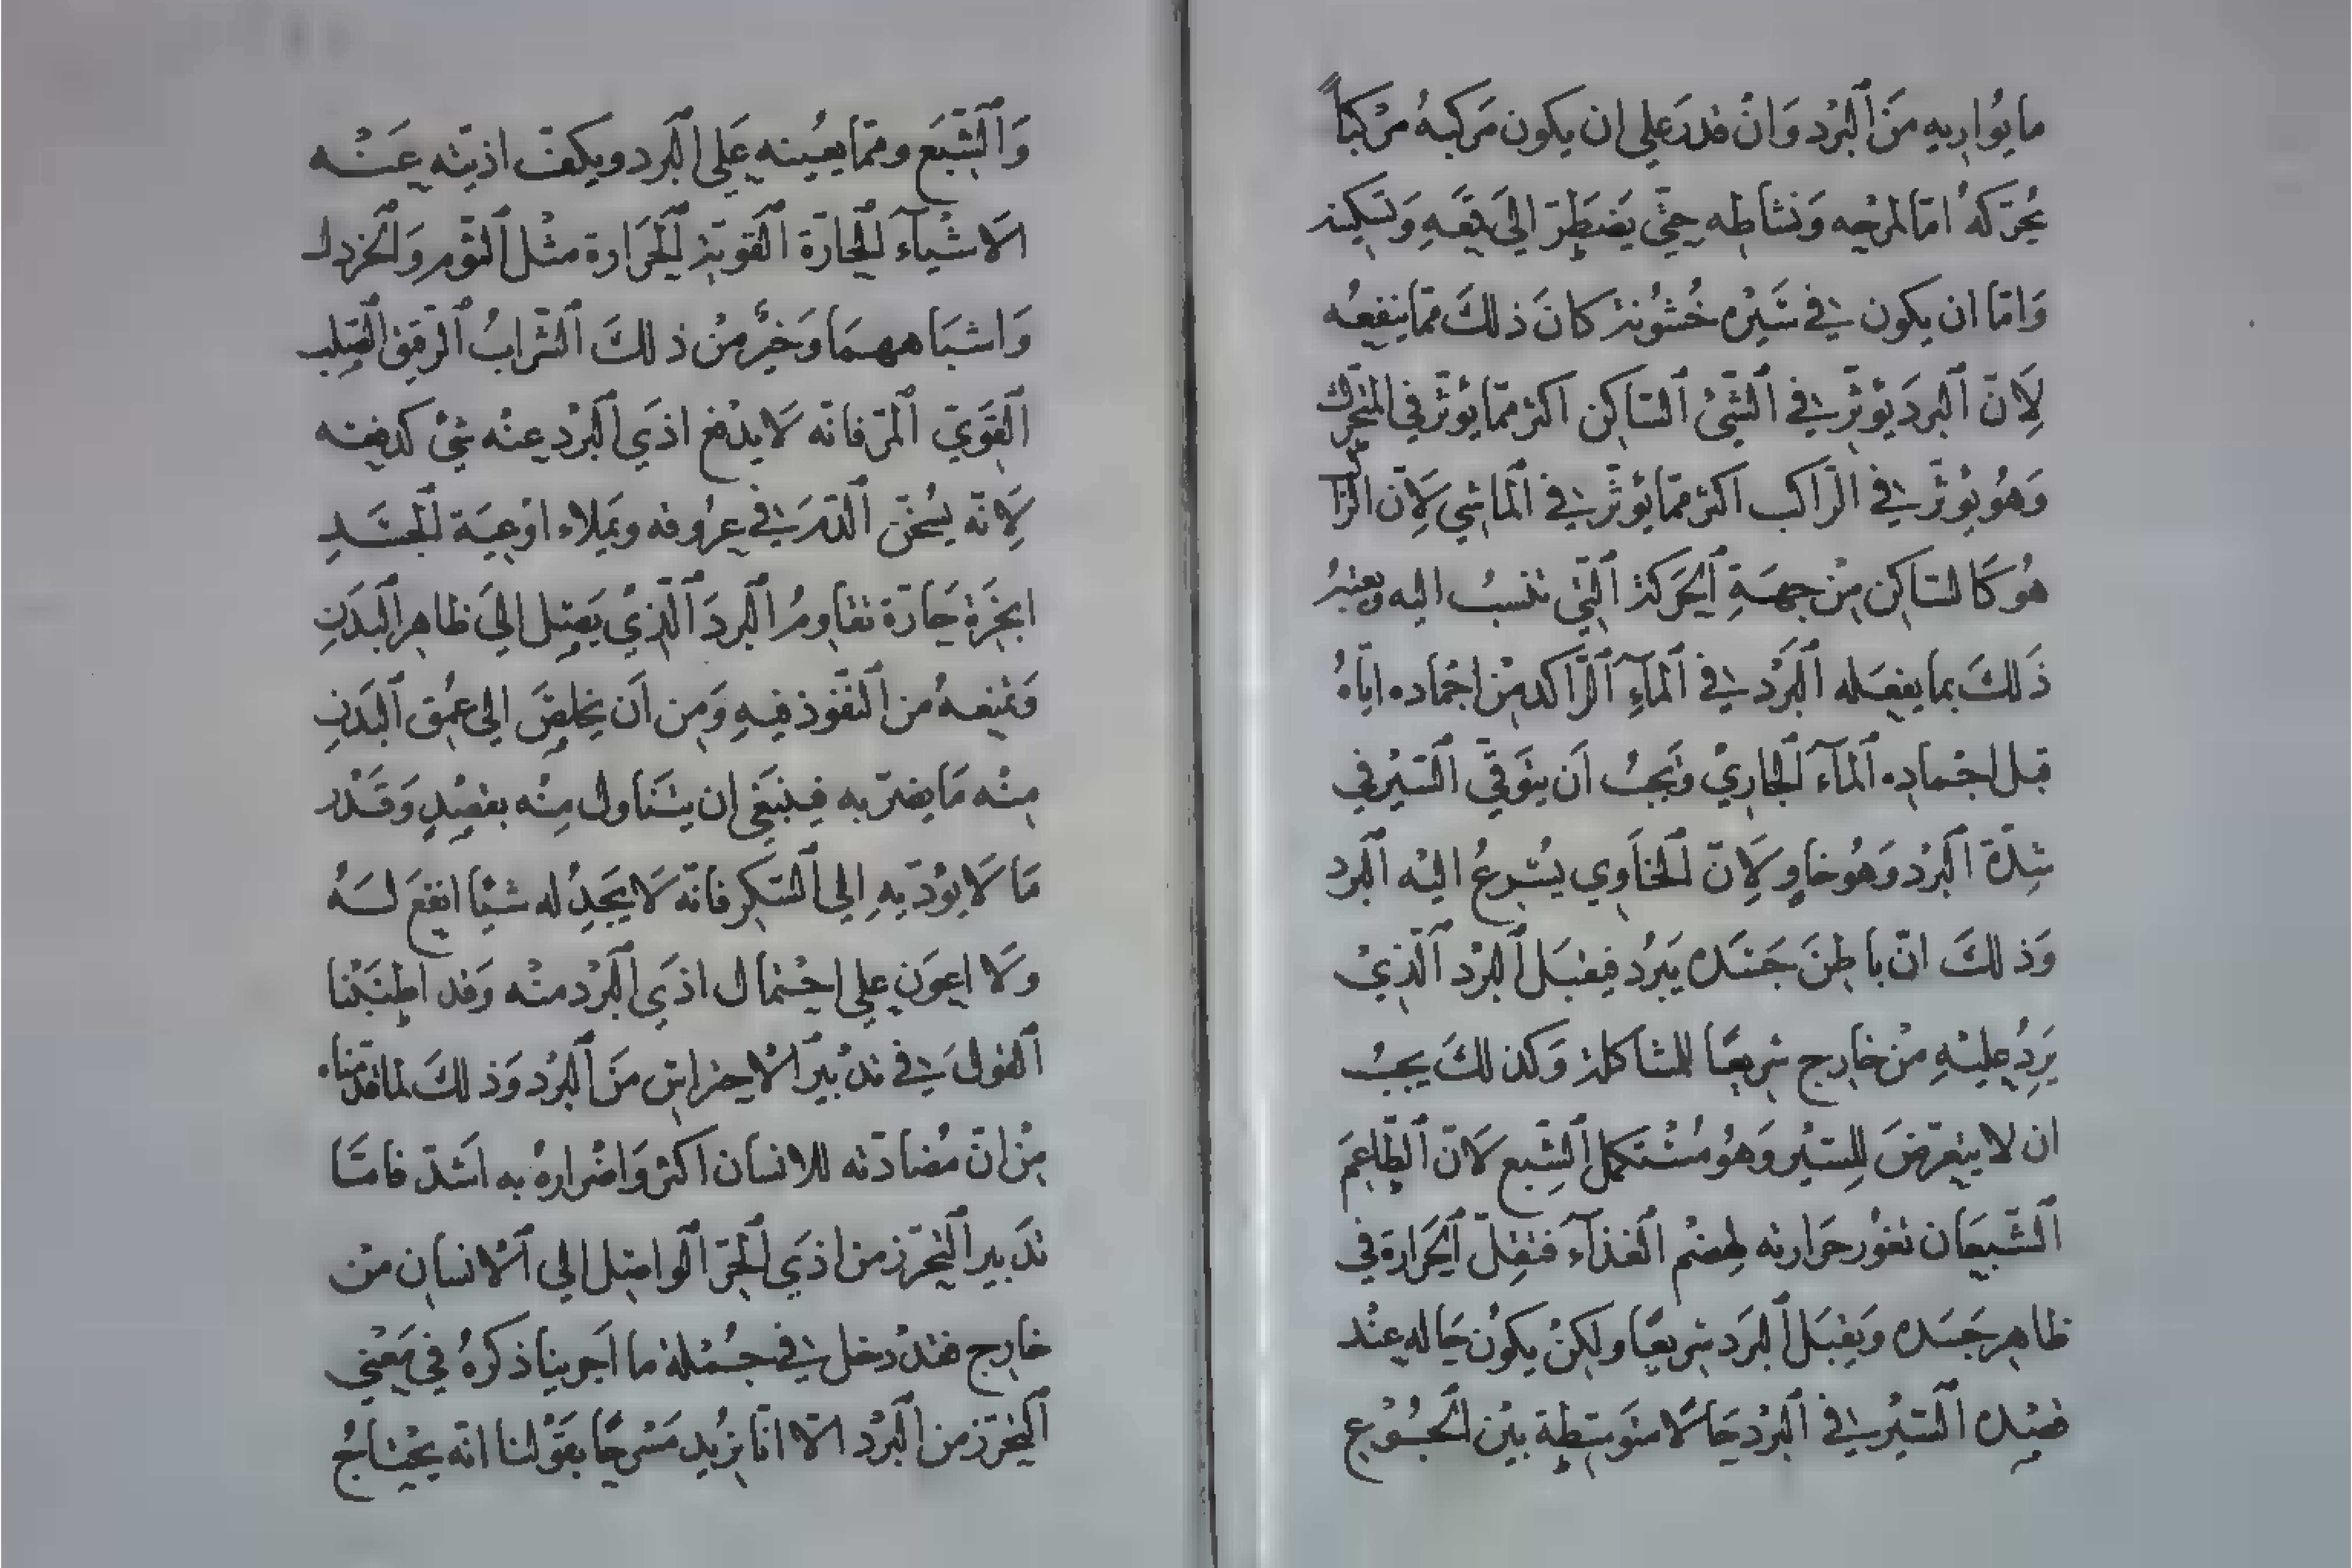 ما يُواريهِ مَنَ ٱلبرْد وَانْ قدرَ علي ان يكون مَركبهُ مرْكباً
يُحرّكهُ امّا لمرَحِه وَنشاطِه حتّي يَضطِرّ الي وَتسكينه
وَامّا ان يكون في سَيْره خُشوُنة كانَ ذلكَ ممّا ينفعُه
لِانّ ٱلبردَ يَؤثّر في ٱلشّيْ ٱلسّاكن اكثر ممّا يؤثّر في المتحرّك
وَهُو يؤثّر في الرّاكب اكثر ممّا يُؤثّر في ٱلماشي لِانّ الراكب
هُو كَالسّاكن مِنْ جهَةِ ٱلحَركة ٱلتّي تنسبُ اليه ويعتبرُ
ذَلكَ بما يفعَله ٱلبَرْد في ٱلمآءِ ٱلرّاكد مِنْ اجماده ايّاهُ
قبل اجماده ٱلمآءَ ٱلجاريْ وَيجبُ اَن يتوَقّي ٱلسّيْر في
شِدّة ٱلبرْد وَهُو خاوٍ لِانّ ٱلخاَوي يُسْرعُ اليْه ٱلبرد
وَذلكَ انّ باطِنَ جَسَده يَبرُد فيقبَل ٱلبرْد ٱلّذيْ
يَرِدُ عليْهِ منْ خارج سريعًا للمشاكلة وَكذلكَ يجبُ
ان لا يتعرّضَ للِسّيْر وَهُو مُسْتكمل ٱلشّبع لاَنّ ٱلطّاعمَ
ٱلشّبعَان تغوُر حَرارته لهضْم ٱلغذآء فتقِلّ ٱلحَرارة في
ظاهر جَسَده وَيَقبَل ٱلبرَد سريعًا ولكنْ يكوُن حَاله عنْد
قصْده ٱلسّيْر في ٱلبرْد حَالاً متوَسّطِة بيْن ٱلجُوْع
وَٱلشّبَع وممّا يعُينه عَلي ٱلبَرد ويكفّ اذيته عَنْه
ٱلاشْيآء ٱلحارّة ٱلقَويّة ٱلحَرَارة مثْل ٱلثوْم وَٱلخردل
وَاشبَاههمَا وَخيرٌ منْ ذلكَ ٱلشّرابُ ٱلرّقيق ٱلصّلب
ٱلقَويّ ٱلمرّ فانّه لاَ يدْفع اذَي ٱلبرْد عنْه شيْ كدفعه
لِانّه يسُخّن ٱلدّمَ في عرُوقه ويَملاء اوْعيَة ٱلجسَدِ
ابخَرةً حَارّة تقاومُ ٱلبردَ ٱلّذيْ يَصِل اليَ ظاهر ٱلبَدَن
وَتمنعهُ من ٱلنّفوُذ فيهِ وَمِن اَن يخلصَ الي عمُق ٱلبَدَن
مِنْه مَا يضرّ به فينبَغي ان يتنَاول مِنْه بقصْدٍ وَقَدْر
مَا لاَ يؤدّيهِ الي ٱلسّكر فانّه لاَ يَجدِ له شيْا انفعَ لهُ
وَلاَ اعوَن علي احْتمال اذَي ٱلبَرْد منْه وَقد اطنَبْنا
ٱلقولَ في تدْبيَر ٱلاحتراس منَ ٱلبرْد وَذلكَ لما قدّمناه
مِنْ انّ مُضادّته للانسان اكثر وَاضْرارهُ به اَشدّ فامّا
تدَبير ٱلتّحرّز من اذَي ٱلحَرّ ٱلواصِل الي ٱلانسان منْ
خارج فقدْ دخل في جُمْلة ما اَجرينا ذكرهُ في مَعْني
ٱلتحّرّز من ٱلبَرْد الاّ انّا نزُيد مَسْرحًا بقَوْلنا انّه يحْتاجُ